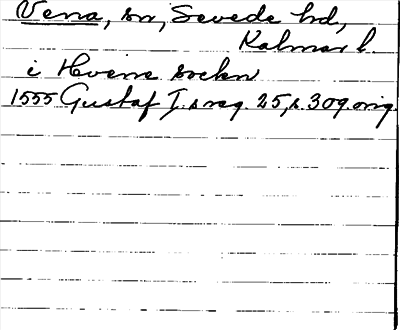 Vena, sn, Sevede hd,
Kalmar l
i Hvena sockn
1555 Gustaf I.s reg. 25, s. 309 orig.